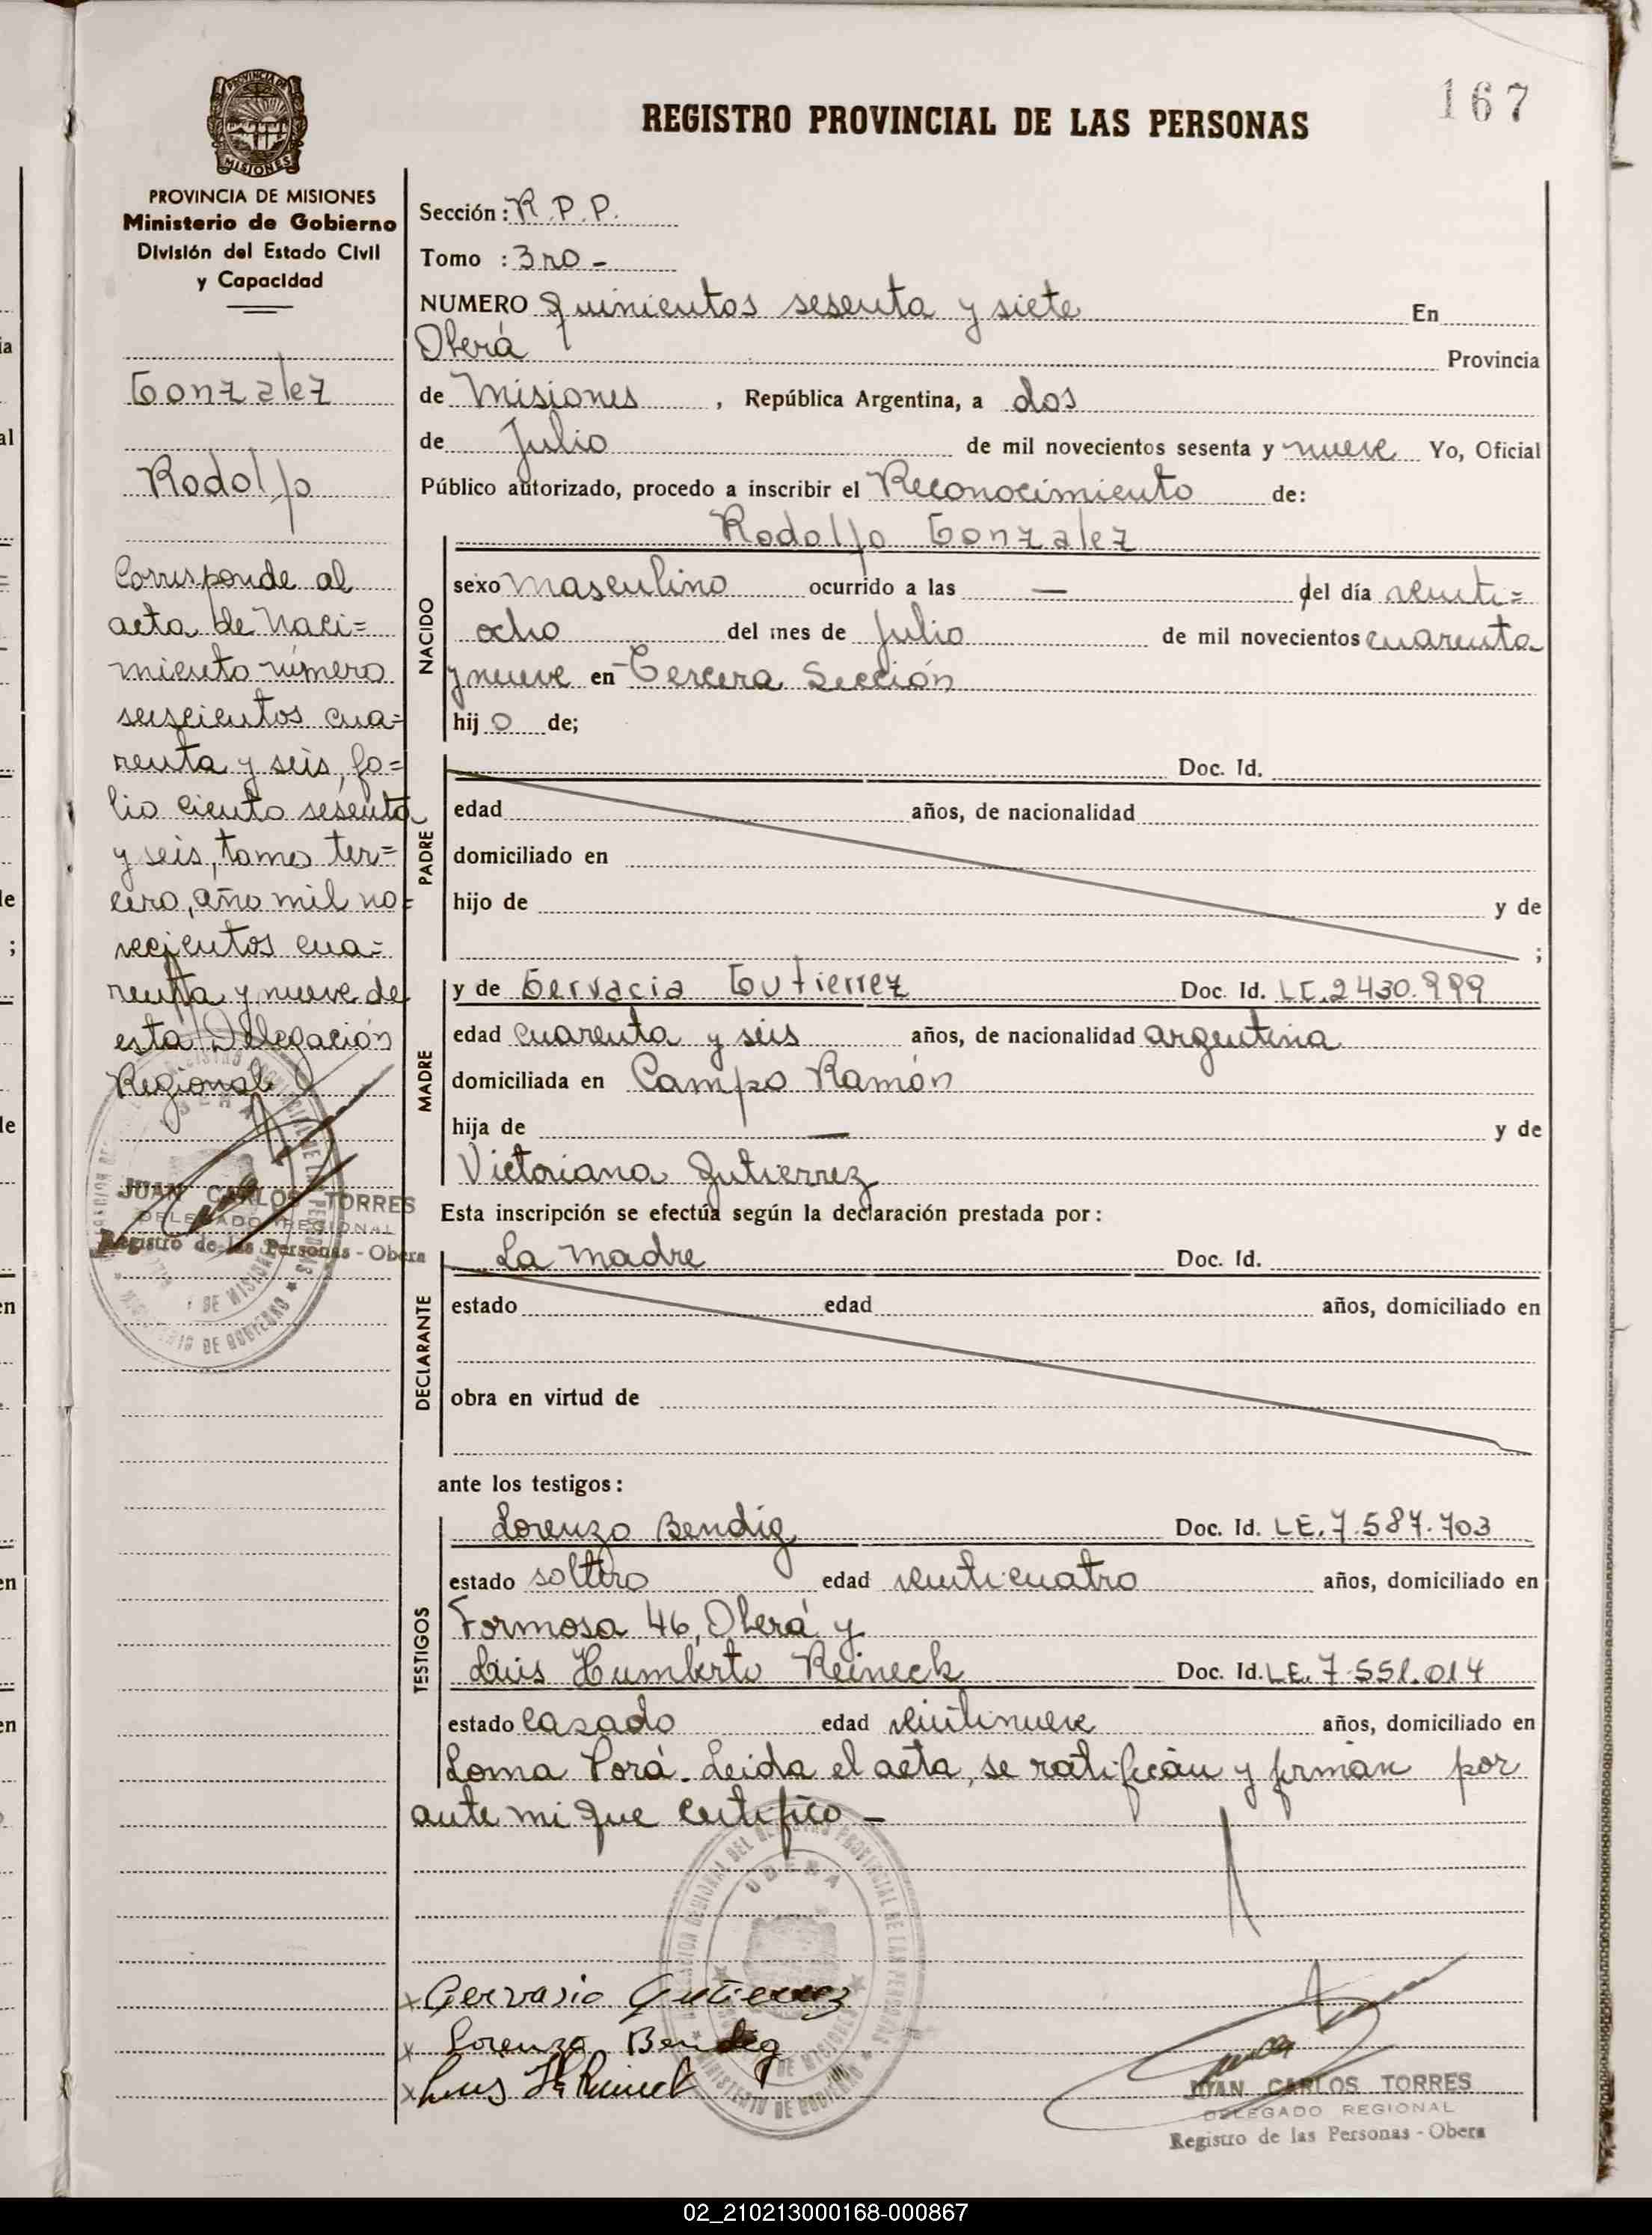 167
REGISTRO PROVINCIAL DE LAS PERSONAS
PROVINCIA DE MISIONES
Ministerio de Gobierno
División del Estado Civil
y Capacidad
Gonzalez
Rodolfo
Corresponde al
acta de Naci=
miento número
seiscientos cua=
renta y seis, fo=
lio ciento sesenta
y seis, tomo ter=
cero, año mil no=
vecientos cua=
renta y nueve de
esta Delegación
Regional
JUAN CARLOS TORRES
DELEGADO REGIONAL
Registro de las Personas - Obera
Sección : R.P.P.
Tomo : 3ro -
NUMERO quinientos sesenta y siete En
Oberá Provincia
de Misiones , República Argentina, a dos
de Julio de mil novecientos sesenta y nueve Yo, Oficial
Público autorizado, procedo a inscribir el Reconocimiento de:
Rodolfo Gonzalez
NACIDO
sexo masculino ocurrido a las — del día veinti=
ocho del mes de Julio de mil novecientos cuarenta
y nueve en Tercera Sección
hij o de;
PADRE
Doc. Id.
edad años, de nacionalidad
domiciliado en
hijo de y de
;
MADRE
y de Gervacia Gutierrez Doc. Id. LC.2430.999
edad cuarenta y seis años, de nacionalidad argentina
domiciliada en Campo Ramón
hija de — y de
Victoriana Gutierrez
Esta inscripción se efectúa según la declaración prestada por :
DECLARANTE
La madre Doc. Id.
estado edad años, domiciliado en
obra en virtud de
ante los testigos :
TESTIGOS
Lorenzo Bendig Doc. Id. LE.7.587.703
estado soltero edad veinticuatro años, domiciliado en
Formosa 46, Oberá y
Luis Humberto Reineck Doc. Id. LE.7.551.014
estado casado edad veintinueve años, domiciliado en
Loma Porá. Leida el acta, se ratifican y firman por
ante mi que certifico —
OBERA
x Gervasio Gutierrez
x Lorenzo Bendig
x Luis H Reineck
JUAN CARLOS TORRES
DELEGADO REGIONAL
Registro de las Personas - Obera
02_210213000168-000867